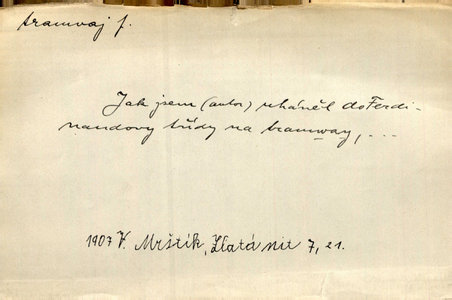 tramvaj f.
Jak jsem (autor) uháněl do Ferdi-
nandovy třídy na tramway, ...
1907 V. Mrštík, Zlatá nit 7, 21.